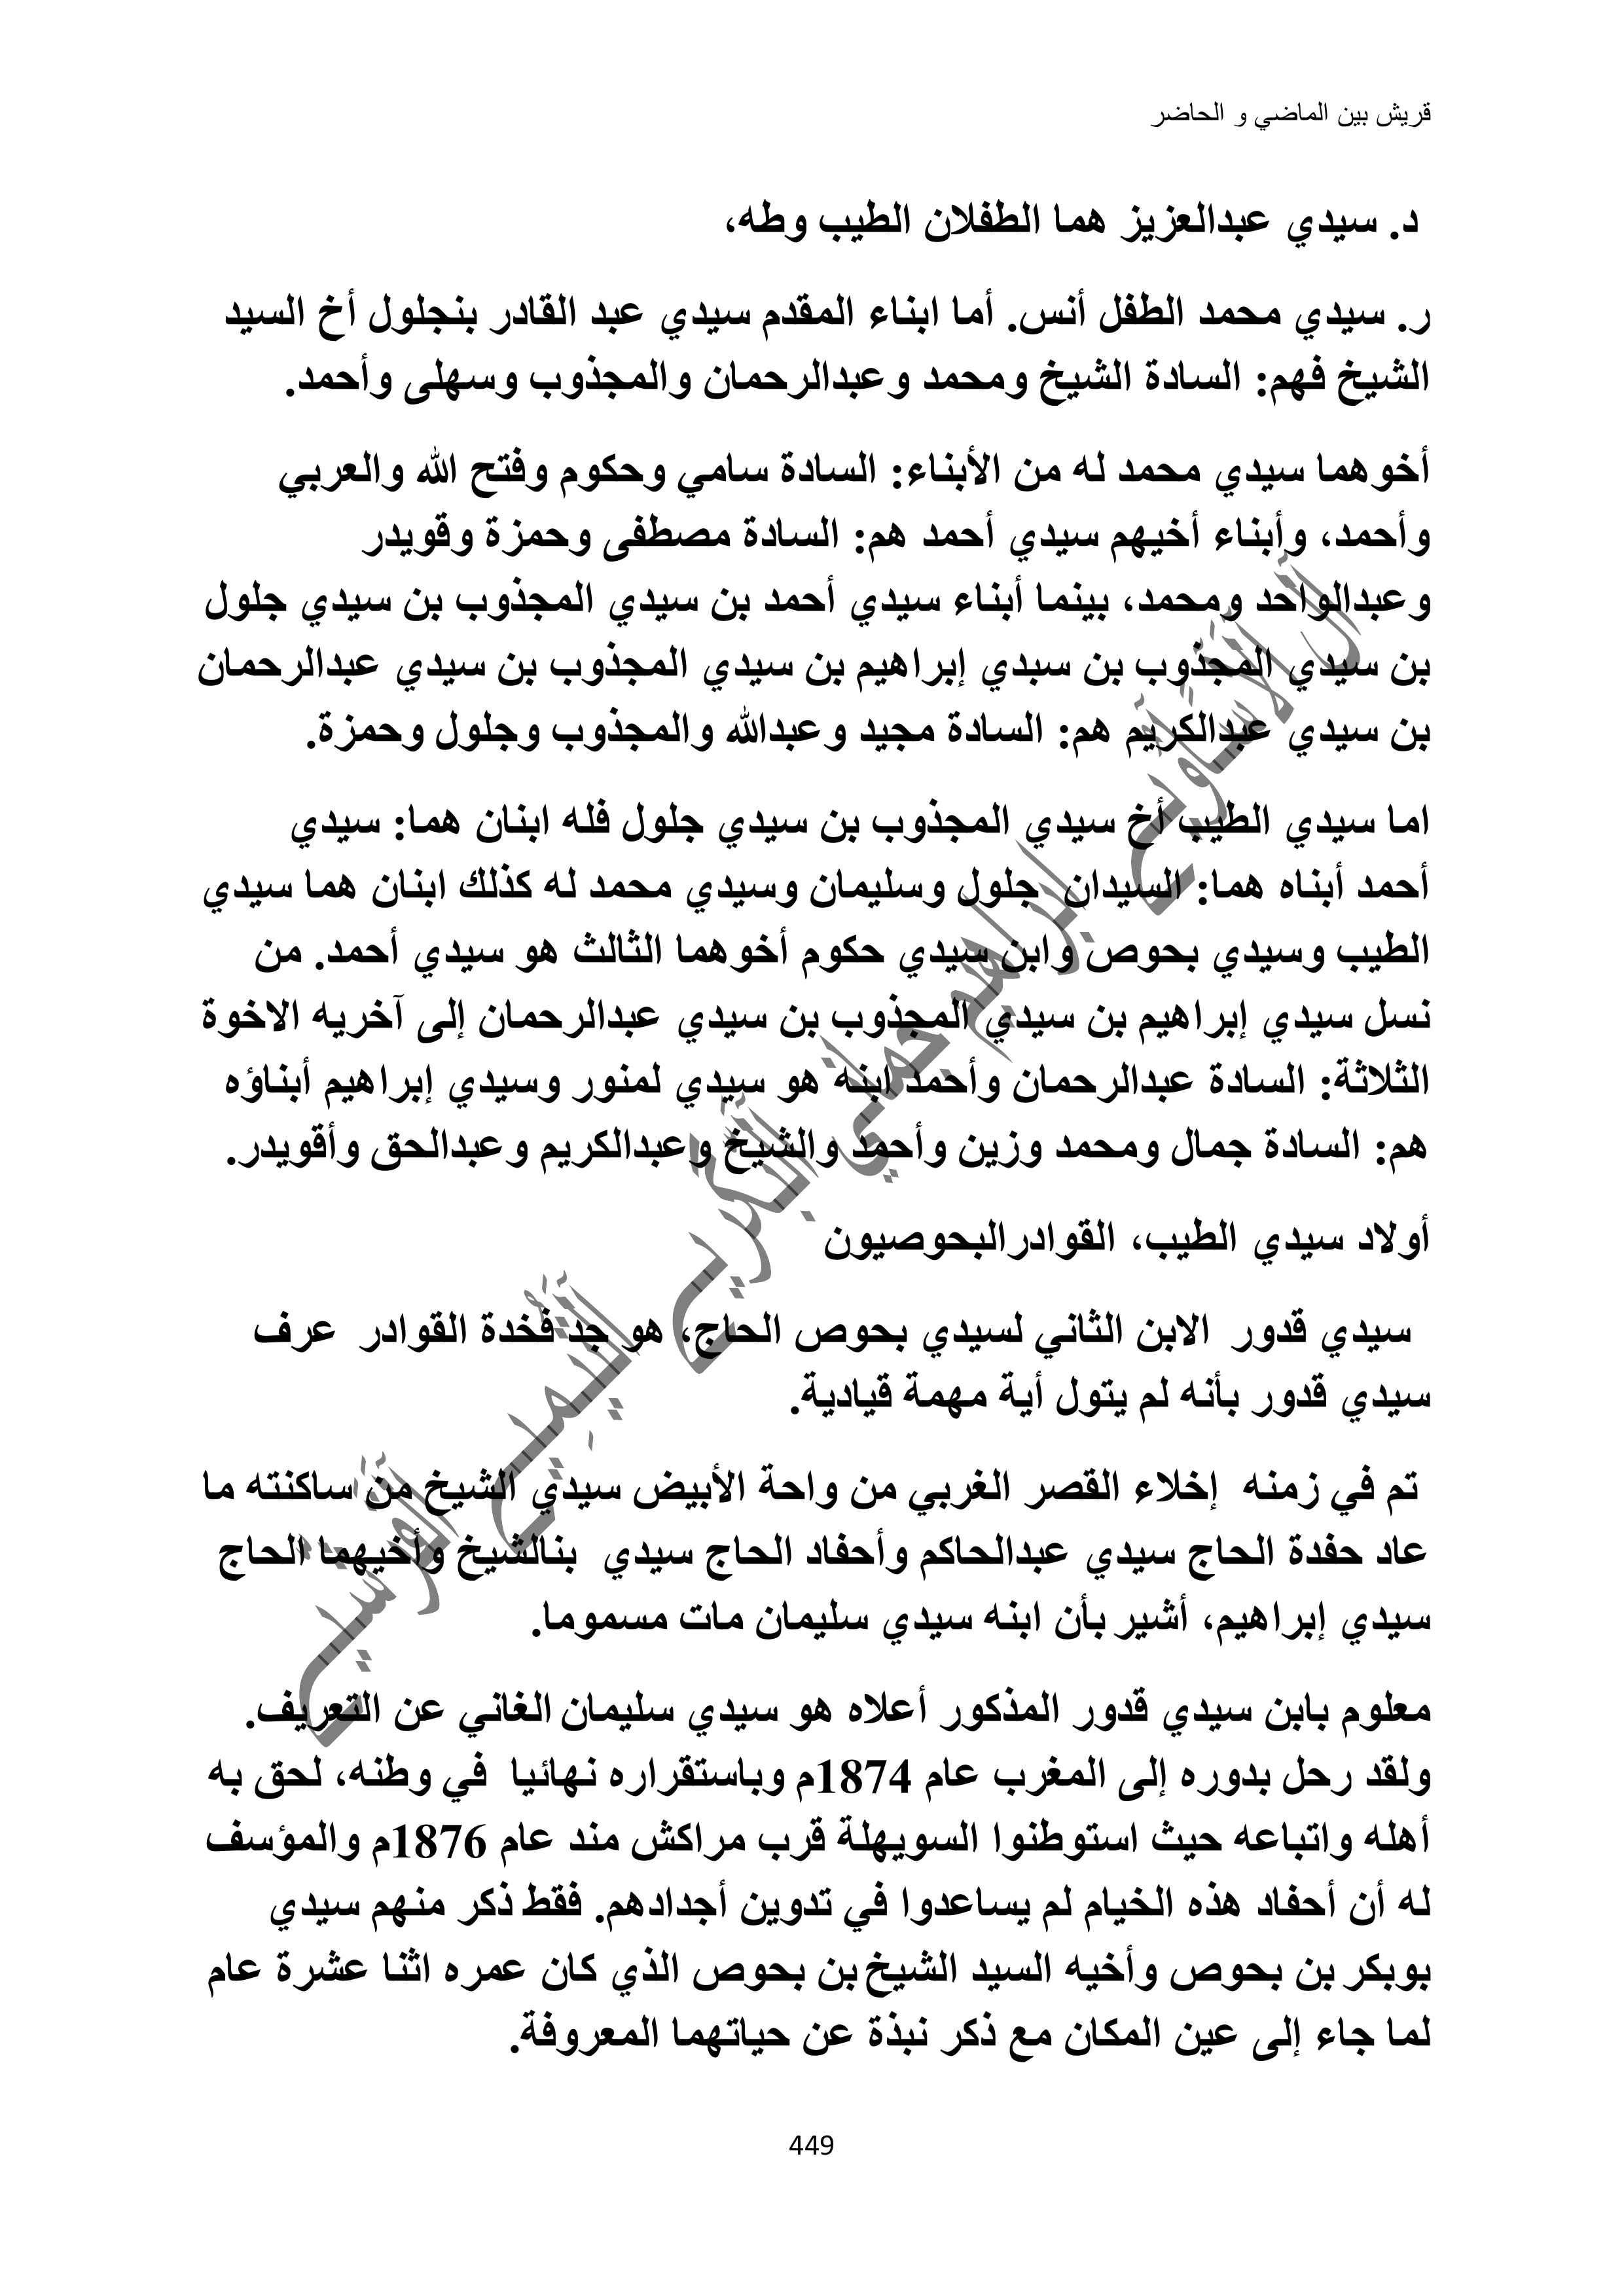 قريش بين الماضي و الحاضر
د. سيدي عبدالعزيز هما الطفلان الطيب وطه،
ر. سيدي محمد الطفل أنس. أما ابناء المقدم سيدي عبد القادر بنجلول أخ السيد
الشيخ فهم: السادة الشيخ ومحمد وعبدالرحمان والمجذوب وسهلى وأحمد.
أخوهما سيدي محمد له من الأبناء: السادة سامي وحكوم وفتح الله والعربي
وأحمد، وأبناء أخيهم سيدي أحمد هم: السادة مصطفى وحمزة وقويدر
وعبدالواحد ومحمد، بينما أبناء سيدي أحمد بن سيدي المجذوب بن سيدي جلول
بن سيدي المجذوب بن سبدي إبراهيم بن سيدي المجذوب بن سيدي عبدالرحمان
بن سيدي عبدالكريم هم: السادة مجيد وعبدالله والمجذوب وجلول وحمزة.
اما سيدي الطيب أخ سيدي المجذوب بن سيدي جلول فله ابنان هما: سيدي
أحمد أبناه هما: السيدان جلول وسليمان وسيدي محمد له كذلك ابنان هما سيدي
الطيب وسيدي بحوص وابن سيدي حكوم أخوهما الثالث هو سيدي أحمد. من
نسل سيدي إبراهيم بن سيدي المجذوب بن سيدي عبدالرحمان إلى آخريه الاخوة
الثلاثة: السادة عبدالرحمان وأحمد ابنه هو سيدي لمنور وسيدي إبراهيم أبناؤه
هم: السادة جمال ومحمد وزين وأحمد والشيخ وعبدالكريم وعبدالحق وأقويدر.
أولاد سيدي الطيب، القوادرالبحوصيون
سيدي قدور الابن الثاني لسيدي بحوص الحاج، هو جد فخدة القوادر عرف
سيدي قدور بأنه لم يتول أية مهمة قيادية.
تم في زمنه إخلاء القصر الغربي من واحة الأبيض سيدي الشيخ من ساكنته ما
عاد حفدة الحاج سيدي عبدالحاكم وأحفاد الحاج سيدي بنالشيخ وأخيهما الحاج
سيدي إبراهيم، أشير بأن ابنه سيدي سليمان مات مسموما.
معلوم بابن سيدي قدور المذكور أعلاه هو سيدي سليمان الغاني عن التعريف.
ولقد رحل بدوره إلى المغرب عام 1874م وباستقراره نهائيا في وطنه، لحق به
أهله واتباعه حيث استوطنوا السويهلة قرب مراكش مند عام 1876م والمؤسف
له أن أحفاد هذه الخيام لم يساعدوا في تدوين أجدادهم. فقط ذكر منهم سيدي
بوبكر بن بحوص وأخيه السيد الشيخ بن بحوص الذي كان عمره اثنا عشرة عام
لما جاء إلى عين المكان مع ذكر نبذة عن حياتهما المعروفة.
449